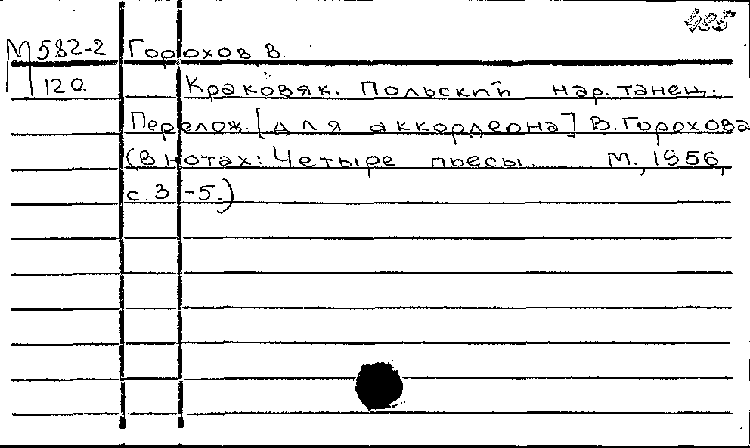 М 582-2 Горохов В.
120 Краковяк. Польский нар. танец.
Перелож. [для аккордеона] В. Горохова
(В нотах: Четыре пьесы. М., 1956,
с. 3-5.)